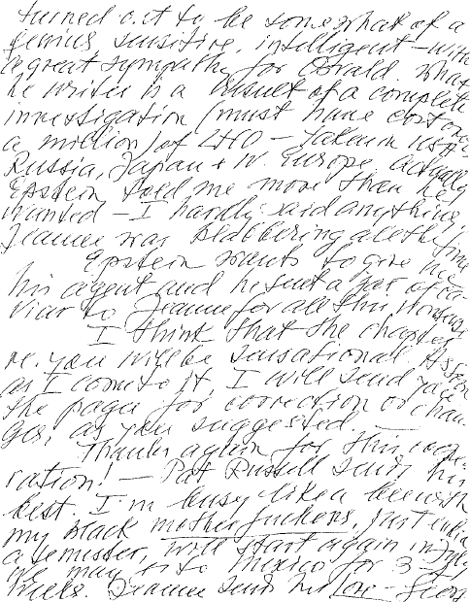 turned out to be somewhat of a
genius sensitive, intelligent - with
a great sympathy for Oswald. What
he writes is a result of a complete
investigation (must have cost over
a million) of LHO - taken USA
Russia, Japan & W. Europe. Actually
Epstein told me more than he
wanted - I hardly said anything,
Jeanne was blabbering all the time
Epstein wants to give me
his agent and he sent a jar of ca-
viar to Jeanne for all this
I think that the chapter
re. you will be sensational. As soon
as I come to it I will send you
the pages for correction or chan-
ges, as you suggested. —
Thanks again for this
ration! - Pat Russell sends his
best. I'm busy like a bee with
my black mother fuckers, just
a semester, will start again in
We may go to Mexico for 3-4
weeks. Jeanne sends her love -